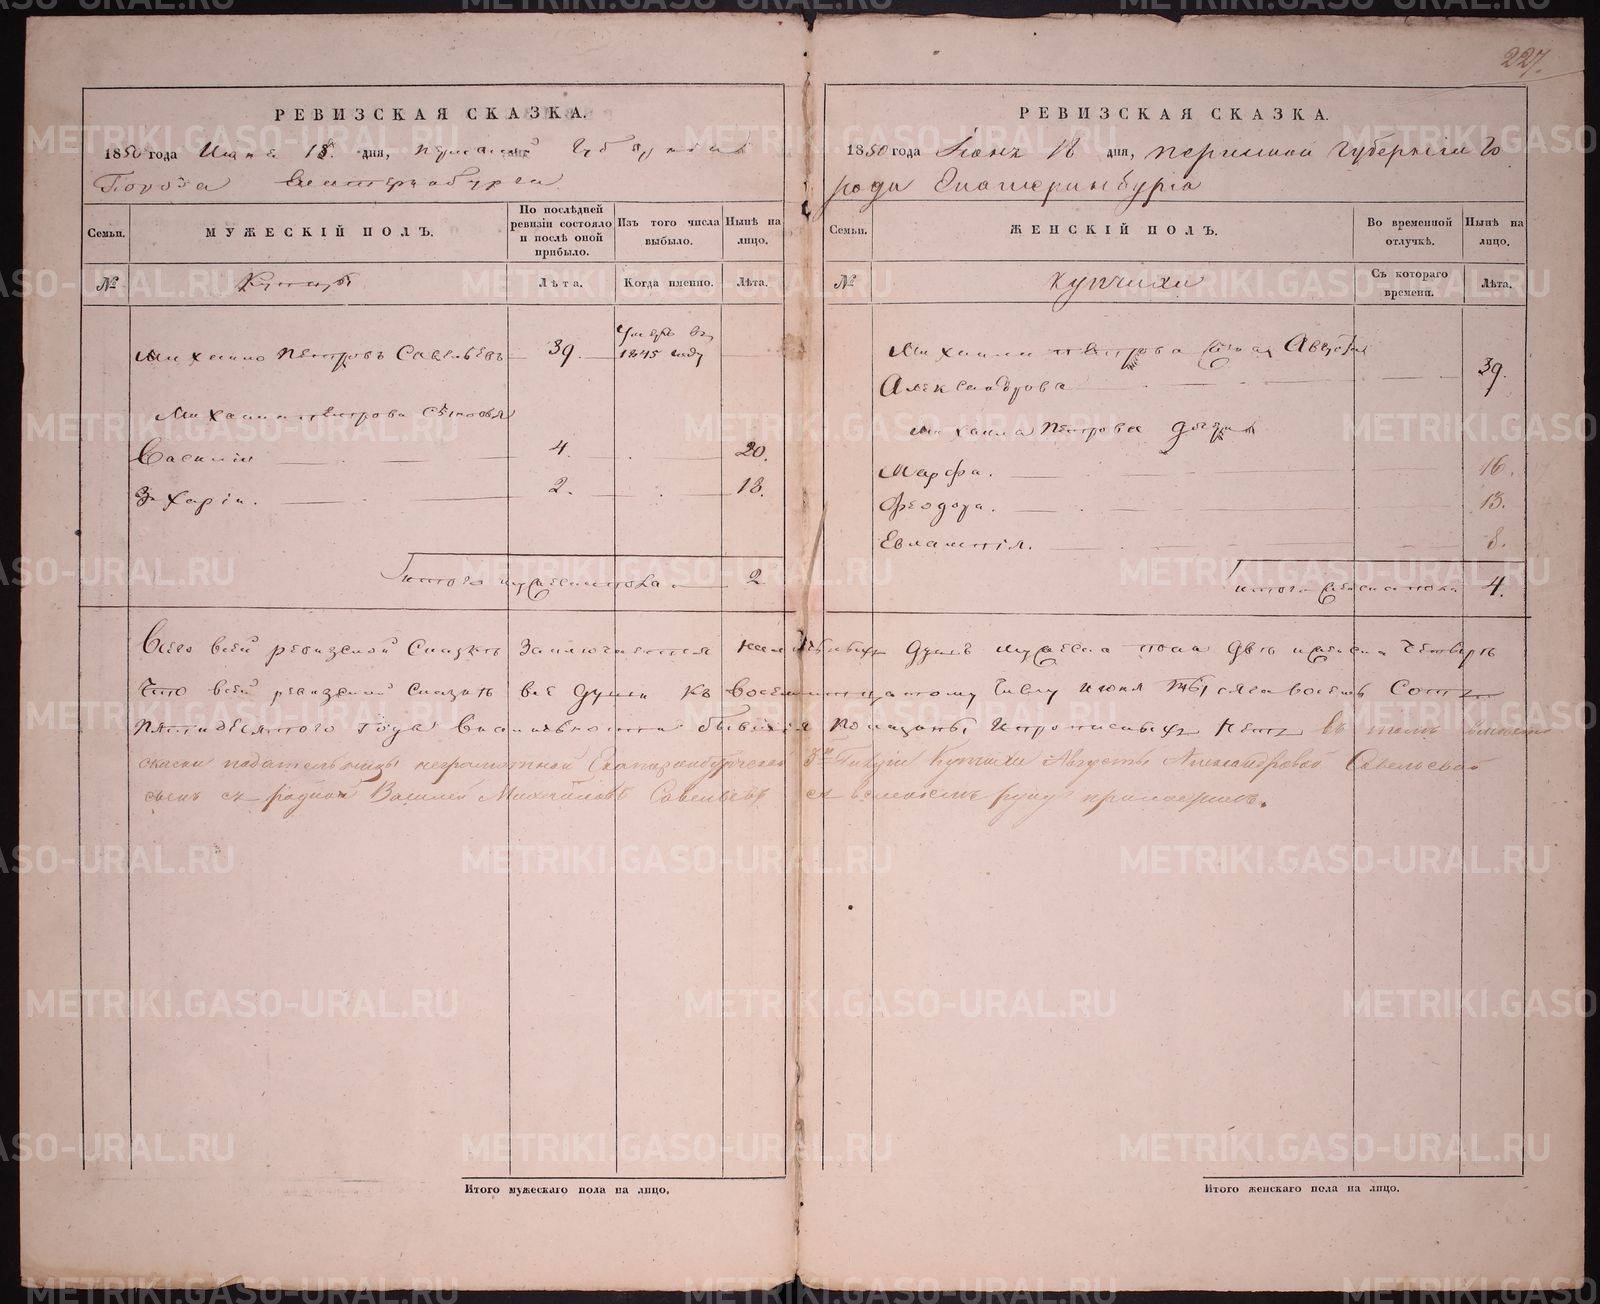 227.
РЕВИЗСКАЯ СКАЗКА.
1850 года Июня 18 дня, Пермской Губернии
Города Екатеринбурга
Семьи.
МУЖЕСКІЙ ПОЛЪ.
По послѣдней ревизіи состояло и послѣ оной прибыло.
Изъ того числа выбыло.
Нынѣ на лицо.
№
Купцы
Лѣта.
Когда именно.
Лѣта.
Михаило Петровъ Савельевъ 39. умеръ въ 1845 году
Михаила Петрова сыновья
Василій 4. 20.
Захарій. 2. 18.
Итого мужеска пола 2
РЕВИЗСКАЯ СКАЗКА.
1850 года Июня 18 дня, Пермской Губерніи Го
рода Екатеринбурга
Семьи.
ЖЕНСКІЙ ПОЛЪ.
Во временной отлучкѣ.
Нынѣ на лицо.
№
Купчихи
Съ котораго времени.
Лѣта.
Михаила Петрова жена Августа
Александрова 39.
Михаила Петрова дочери
Марфа. 16.
Феодора. 13.
Евлампія. 8.
Итого женска пола 4.
Всего в сей ревизской сказкѣ заключается душъ мужеска пола двѣ и женска четыре
Что в сей ревизской сказкѣ все души къ восемнатцатому числу июня тысяча восемь сотъ
пятидесятого года в наличности бывшія показаны и прописныхъ нетъ въ томъ вместо
скаски подательницы неграмотной Екатеринбургской 3й Гильдіи Купчихи Августы Александровой Савельевой
сынъ ея родной Василей Михайловъ Савельевъ руку приложилъ.
Итого мужескаго пола на лицо.
Итого женскаго пола на лицо.
METRIKI.GASO-URAL.RU